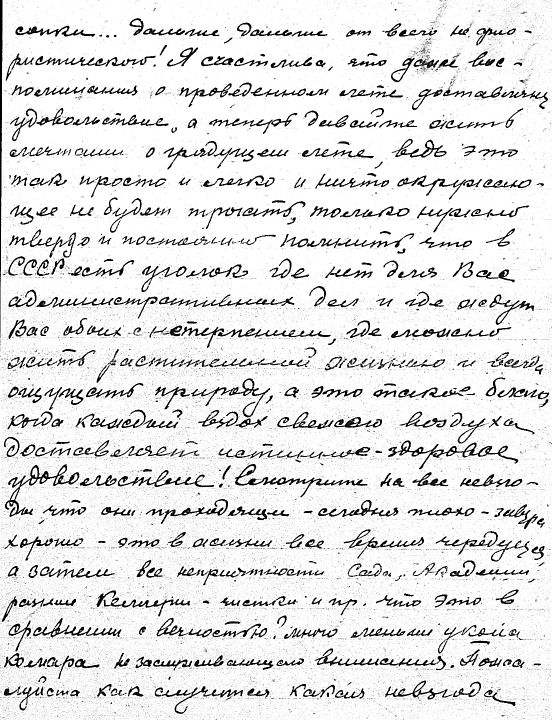 сопки... дальше, дальше от всего не фло-
ристического! Я счастлива, что даже вос-
поминания о проведенном лете доставляют
удовольствие, а теперь давайте жить
мечтами о грядущем лете, ведь это
так просто и легко и ничто окружаю-
щее не будет трогать, только нужно
твердо и постоянно помнить, что в
СССР есть уголок где нет для Вас
административных дел и где ждут
Вас обоих с нетерпением, где можно
жить растительной жизнью и всегда
ощущать природу, а это такое благо,
когда каждый вздох свежего воздуха
доставляет истинное-здоровое
удовольствие! Смотрите на все невзго-
ды, что они проходящи - сегодня плохо - завтра
хорошо - это в жизни все время чередуется,
а затем все неприятности Сада, Академии,
разные - чистки и пр. что это в
сравнении с вечностью? много меньше укола
комара не заслуживающего внимания. Пожа-
луйста как случится какая невзгода